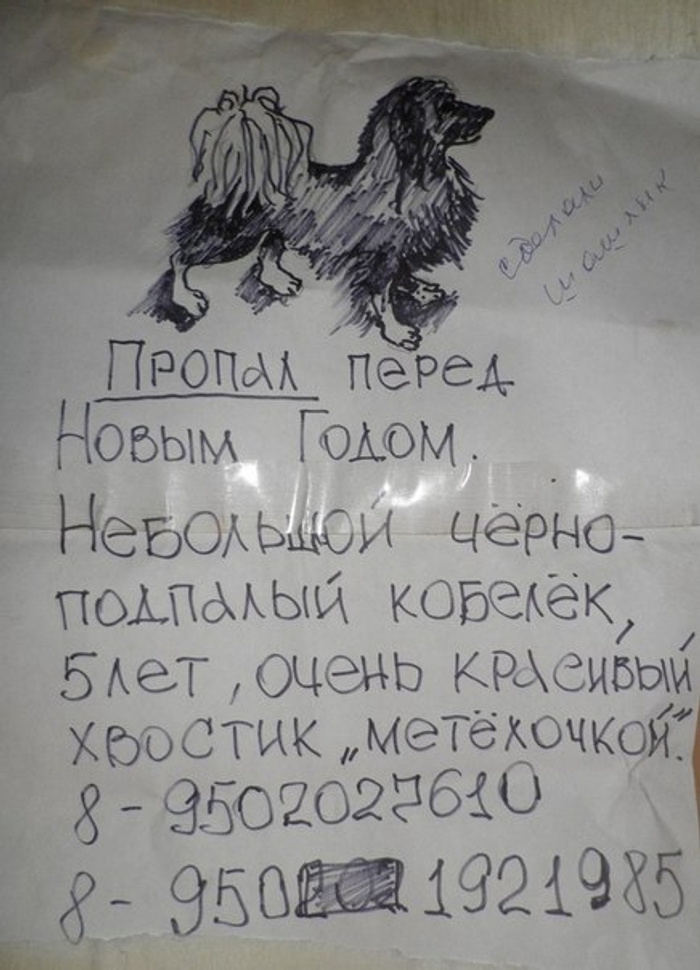 сделали
шашлык
Пропал перед
Новым Годом.
Небольшой чёрно-
подпалый кобелёк,
5 лет, очень красивый
хвостик „метёлочкой".
8-9502027610
8-950 1921985